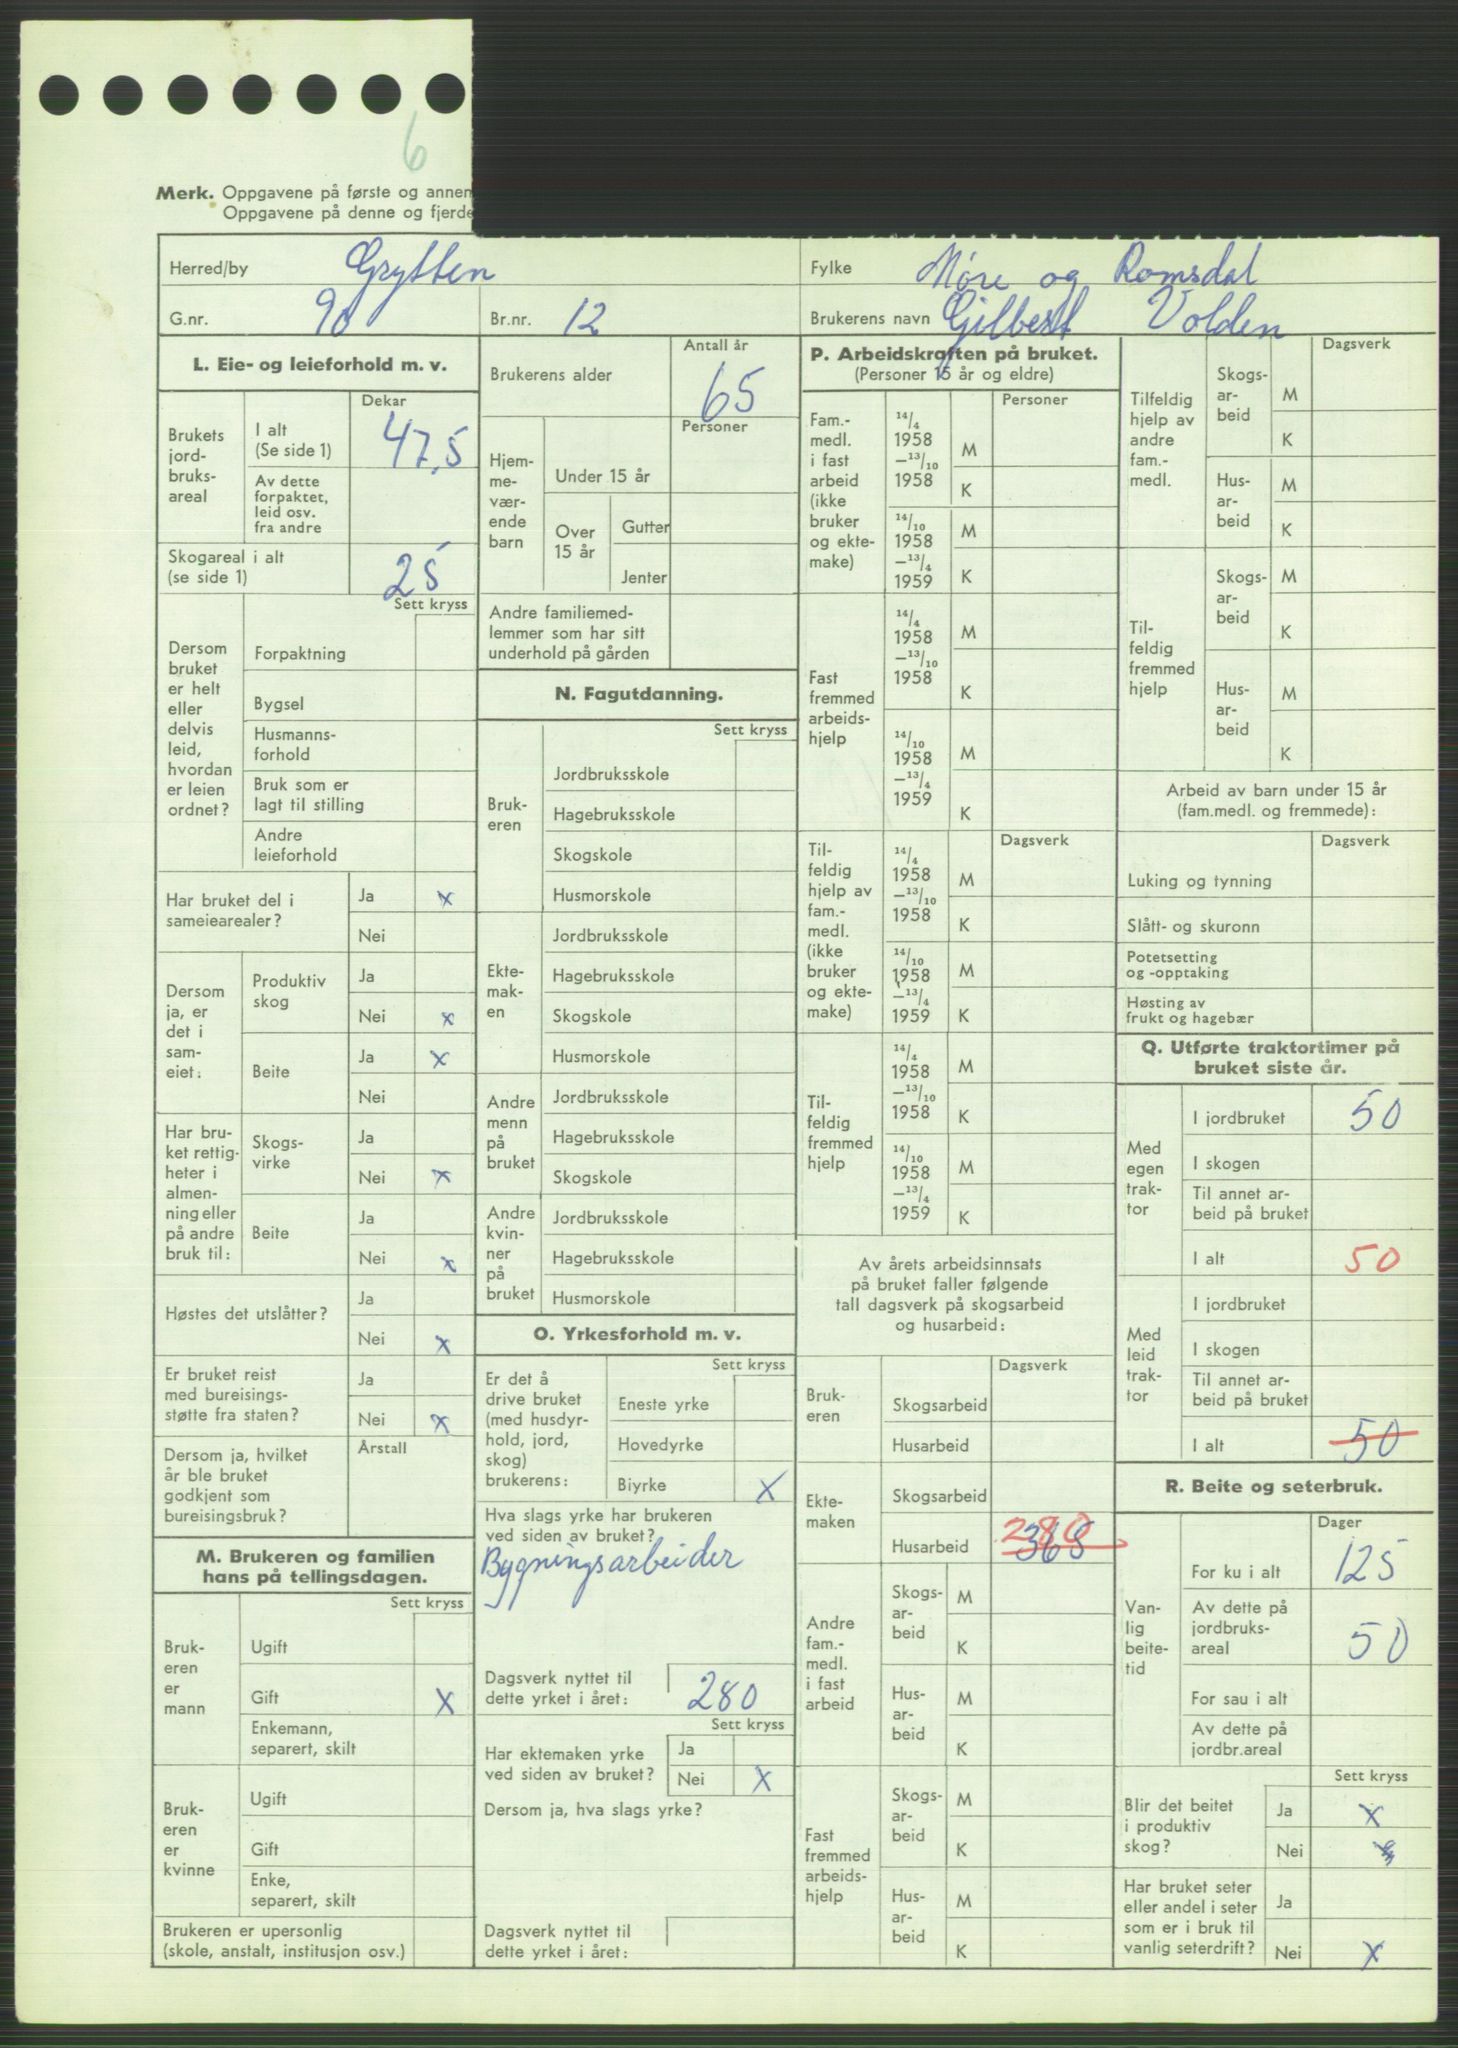 6
Merk. Oppgavene på første og annen
Oppgavene på denne og fjerde
Herred/by Grytten
Fylke Møre og Romsdal
G.nr. 90 Br.nr. 12
Brukerens navn Gilbert Volden
L. Eie- og leieforhold m. v.
Dekar
Brukets
jord-
bruks-
areal
I alt
(Se side 1) 47,5
Av dette
forpaktet,
leid osv.
fra andre
Skogareal i alt
(se side 1) 25
Sett kryss
Dersom
bruket
er helt
eller
delvis
leid,
hvordan
er leien
ordnet?
Forpaktning
Bygsel
Husmanns-
forhold
Bruk som er
lagt til stilling
Andre
leieforhold
Har bruket del i
sameiearealer?
Ja x
Nei
Dersom
ja, er
det i
sam-
eiet:
Produktiv
skog
Ja
Nei x
Beite
Ja x
Nei
Har bru-
ket rettig-
heter i
almen-
ning eller
på andre
bruk til:
Skogs-
virke
Ja
Nei x
Beite
Ja
Nei x
Høstes det utslåtter?
Ja
Nei x
Er bruket reist
med bureisings-
støtte fra staten?
Ja
Nei x
Dersom ja, hvilket
år ble bruket
godkjent som
bureisingsbruk?
Årstall
M. Brukeren og familien
hans på tellingsdagen.
Sett kryss
Bruk-
eren
er
mann
Ugift
Gift X
Enkemann,
separert, skilt
Bruk-
eren
er
kvinne
Ugift
Gift
Enke,
separert, skilt
Brukeren er upersonlig
(skole, anstalt, institusjon osv.)
Antall år
Brukerens alder 65
Personer
Hjem-
me-
vær-
ende
barn
Under 15 år
Over
15 år
Gutter
Jenter
Andre familiemed-
lemmer som har sitt
underhold på gården
N. Fagutdanning.
Sett kryss
Bruk-
eren
Jordbruksskole
Hagebruksskole
Skogskole
Husmorskole
Ekte-
mak-
en
Jordbruksskole
Hagebruksskole
Skogskole
Husmorskole
Andre
menn
på
bruket
Jordbruksskole
Hagebruksskole
Skogskole
Andre
kvin-
ner
på
bruket
Jordbruksskole
Hagebruksskole
Husmorskole
O. Yrkesforhold m. v.
Sett kryss
Er det å
drive bruket
(med husdyr-
hold, jord,
skog)
brukerens:
Eneste yrke
Hovedyrke
Biyrke X
Hva slags yrke har brukeren
ved siden av bruket?
Bygningsarbeider
Dagsverk nyttet til
dette yrket i året: 280
Sett kryss
Har ektemaken yrke
ved siden av bruket?
Ja
Nei X
Dersom ja, hva slags yrke?
Dagsverk nyttet til
dette yrket i året:
P. Arbeidskraften på bruket.
(Personer 15 år og eldre)
Personer
Fam.-
medl.
i fast
arbeid
(ikke
bruker
og ekte-
make)
14/4
1958
—13/10
1958
M
K
14/10
1958
—13/4
1959
M
K
Fast
fremmed
arbeids-
hjelp
14/4
1958
—13/10
1958
M
K
14/10
1958
—13/4
1959
M
K
Dagsverk
Til-
feldig
hjelp av
fam.-
medl.
(ikke
bruker
og ekte-
make)
14/4
1958
—13/10
1958
M
K
14/10
1958
—13/4
1959
M
K
Til-
feldig
fremmed
hjelp
14/4
1958
—13/10
1958
M
K
14/10
1958
—13/4
1959
M
K
Av årets arbeidsinnsats
på bruket faller følgende
tall dagsverk på skogsarbeid
og husarbeid:
Dagsverk
Bruk-
eren
Skogsarbeid
Husarbeid
Ekte-
maken
Skogsarbeid
Husarbeid 280 365
Andre
fam.-
medl.
i fast
arbeid
Skogs-
ar-
beid
M
K
Hus-
ar-
beid
M
K
Fast
fremmed
arbeids-
hjelp
Skogs-
ar-
beid
M
K
Hus-
ar-
beid
M
K
Dagsverk
Tilfeldig
hjelp av
andre
fam.-
medl.
Skogs-
ar-
beid
M
K
Hus-
ar-
beid
M
K
Til-
feldig
fremmed
hjelp
Skogs-
ar-
beid
M
K
Hus-
ar-
beid
M
K
Arbeid av barn under 15 år
(fam.medl. og fremmede):
Dagsverk
Luking og tynning
Slått- og skuronn
Potetsetting
og -opptaking
Høsting av
frukt og hagebær
Q. Utførte traktortimer på
bruket siste år.
Med
egen
trak-
tor
I jordbruket 50
I skogen
Til annet ar-
beid på bruket
I alt 50
Med
leid
trak-
tor
I jordbruket
I skogen
Til annet ar-
beid på bruket
I alt 50
R. Beite og seterbruk.
Dager
Van-
lig
beite-
tid
For ku i alt 125
Av dette på
jordbruks-
areal 50
For sau i alt
Av dette på
jordbr.areal
Sett kryss
Blir det beitet
i produktiv
skog?
Ja X
Nei
Har bruket seter
eller andel i seter
som er i bruk til
vanlig seterdrift?
Ja
Nei X